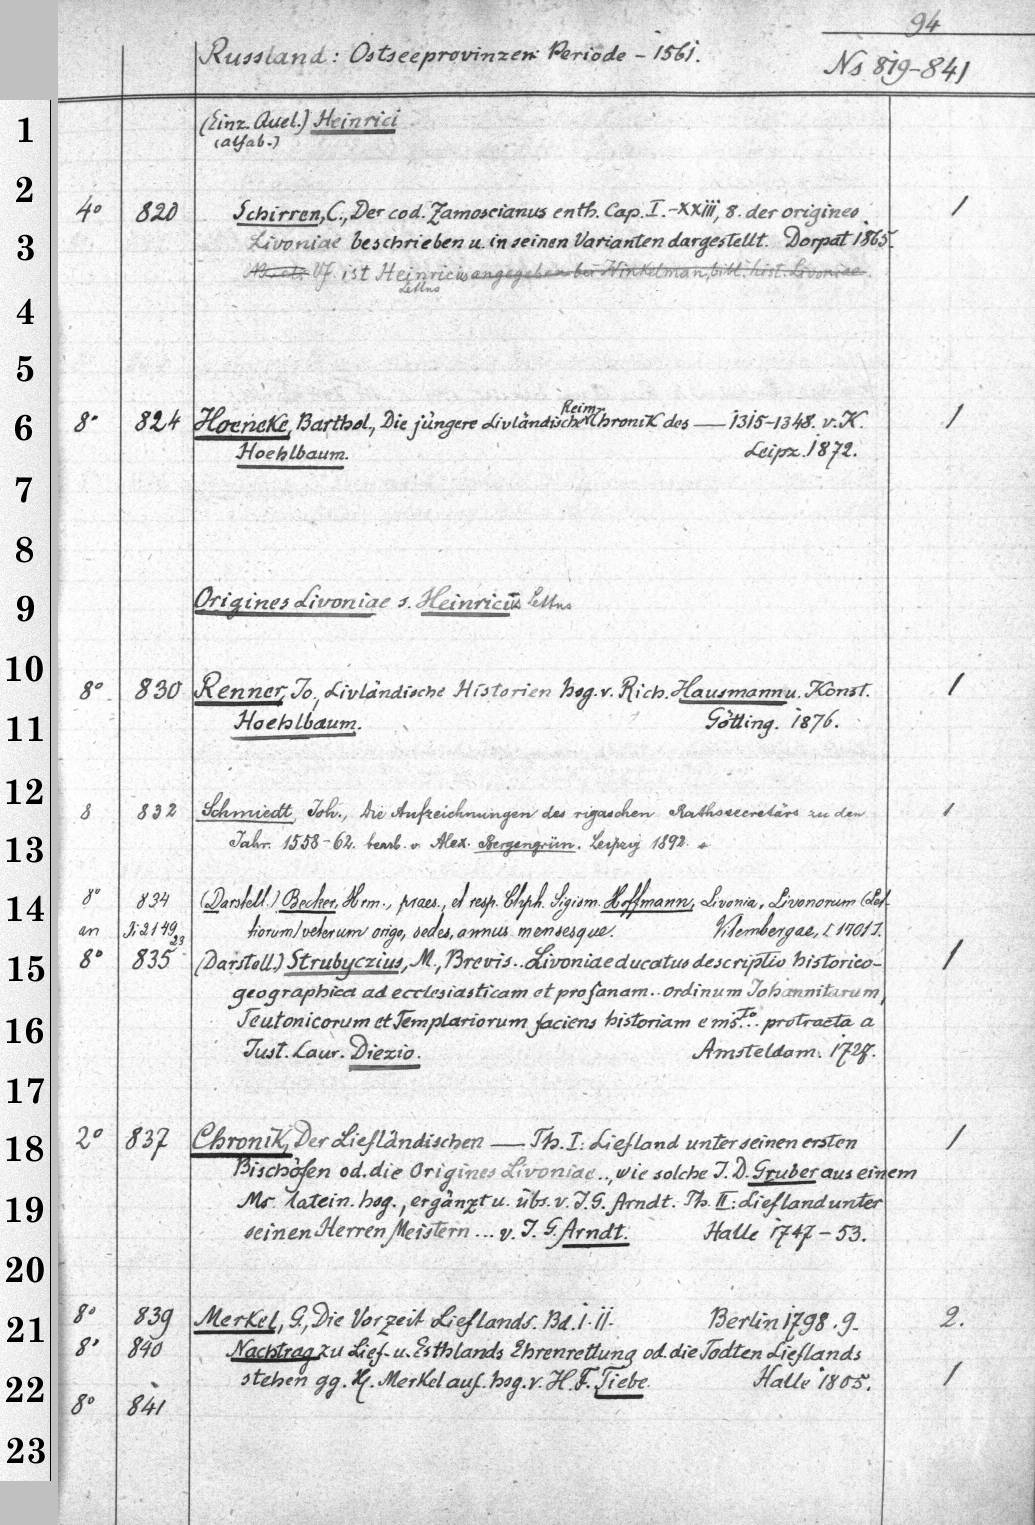 94
Russland: Ostseeprovinzen: Periode – 1561.
Ns 819-841
1
(Einz. Quel.) Heinrici
(alfab.)
2
4° 820 Schirren, C., Der cod. Zamoscianus enth. Cap. I.-XXIII, 8. der origines 1
3
Livoniae beschrieben u. in seinen Varianten dargestellt. Dorpat 1865.
Vf. ist Heinricus angegeben bei Winkelman, bibl. hist. Livoniae.
Lettus
4
5
6
8° 824 Hoeneke, Barthol., Die jüngere Livländische Reim-Chronik des — 1315-1348. v. K. 1
Hoehlbaum. Leipz. 1872.
7
8
9
Origines Livoniae s. Heinricus Lettus
10
8° 830 Renner, Jo., Livländische Historien hsg. v. Rich. Hausmann u. Konst. 1
11
Hoehlbaum. Götting. 1876.
12
8 832 Schmiedt, Joh., Die Aufzeichnungen des rigaschen Rathssecretärs zu den 1
13
Jahr. 1558-62. bearb. v. Alex. Bergengrün. Leipzig 1892.
14
8° 834 (Darstell.) Becker, Hrm., praes., et resp. Chph. Sigism. Hoffmann, Livonia, Livonorum (Let-
an 2149 23 tiorum) veterum origo, sedes, annus mensesque. Vitembergae, 1701
15
8° 835 (Darstell.) Strubyczius, M., Brevis.. Livoniae ducatus descriptio historico- 1
geographica ad ecclesiasticam et profanam.. ordinum Johannitarum,
16
Teutonicorum et Templariorum faciens historiam e ms.to.. protracta a
Just. Laur. Diezio. Amsteldam. 1727.
17
18
2° 837 Chronik, Der Liefländischen — Th. I: Liefland unter seinen ersten 1
Bischöfen od. die Origines Livoniae.., wie solche J. D. Gruber aus einem
19
Ms. latein. hsg., ergänzt u. übs. v. J. G. Arndt. Th. II: Liefland unter
seinen Herren Meistern ... v. J. G. Arndt. Halle 1747-53.
20
21
8° 839 Merkel, G., Die Vorzeit Lieflands. Bd. I. II. Berlin 1798. 9. 2.
8° 840 Nachtrag zu Lief- u. Esthlands Ehrenrettung od. die Todten Lieflands
22
stehen gg. H. Merkel auf. hsg. v. H. F. Tiebe. Halle 1805. 1
8° 841
23